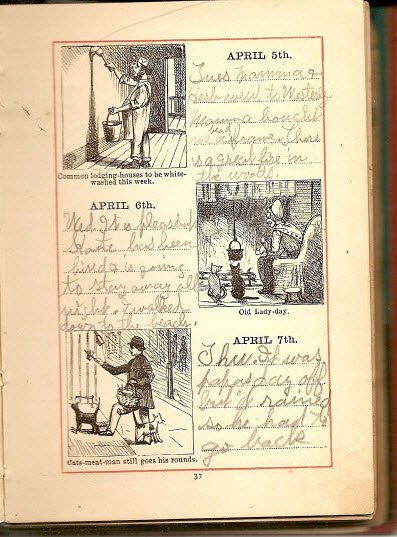 APRIL 5th.
Tues Mamma &
Herb went to Westerly
Mamma bought
bed
frame. There
is a great fire in
the woods.
Common lodging-houses to be white-
washed this week.
APRIL 6th.
Wed. It is pleasant
had been
is going
to stay away all
night. I walked
down to the beach.
Old Lady-day.
APRIL 7th.
Thu. It was
papas day off
but it rained
so he had to
go back
Cats-meat-man still goes his rounds.
37